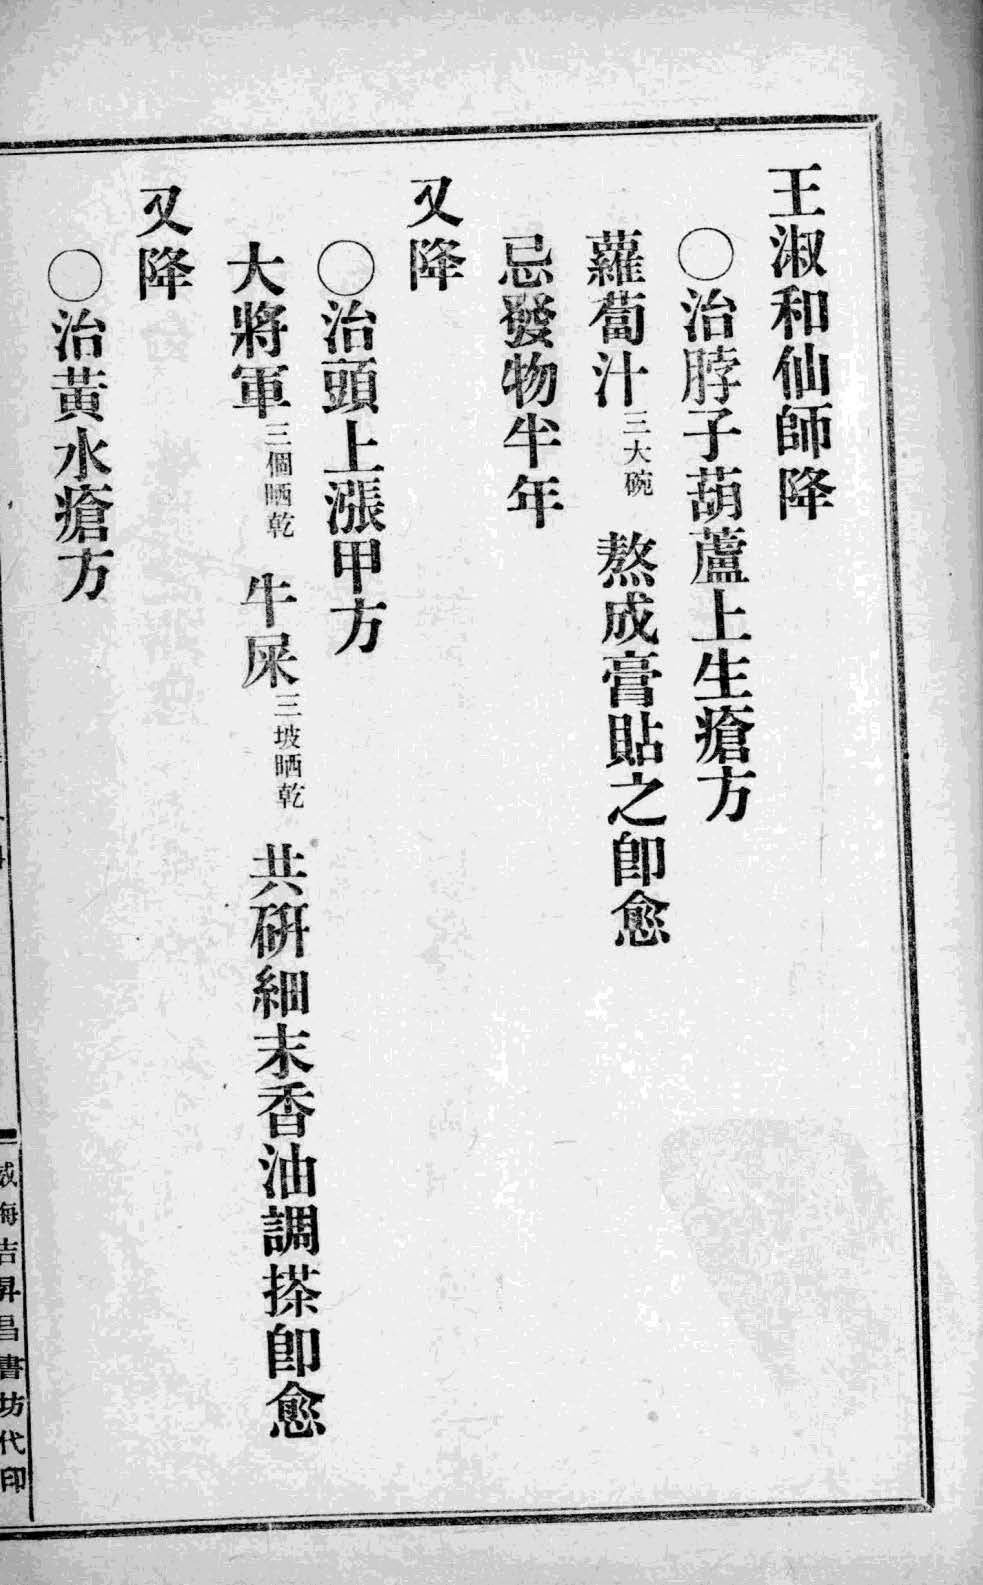 王淑和仙師降
○治脖子葫蘆上生瘡方
蘿蔔汁三大碗 熬成膏貼之卽愈
忌發物半年
又降
○治頭上漲甲方
大將軍三個晒乾 牛屎三坡晒乾 共硏細末香油調搽卽愈
又降
○治黃水瘡方
威海吉昇昌書坊代印